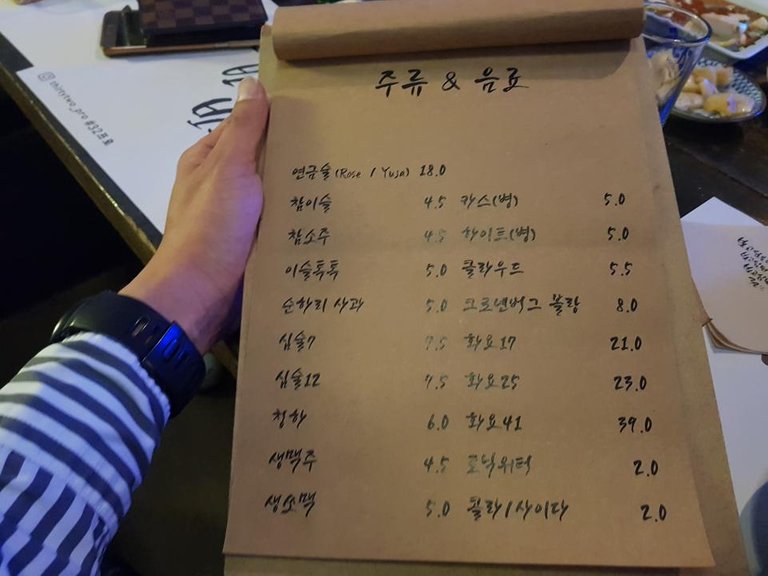 주류 & 음료
연금술 (Rose / Yuja) 18.0
참이슬 4.5 카스(병) 5.0
참소주 4.5 하이트(병) 5.0
이슬톡톡 5.0 클라우드 5.5
순하리 사과 5.0 크로넨버그 블랑 8.0
심술7 7.5 화요17 21.0
심술12 7.5 화요25 23.0
청하 6.0 화요41 39.0
생맥주 4.5 토닉워터 2.0
생쏘맥 5.0 콜라/사이다 2.0